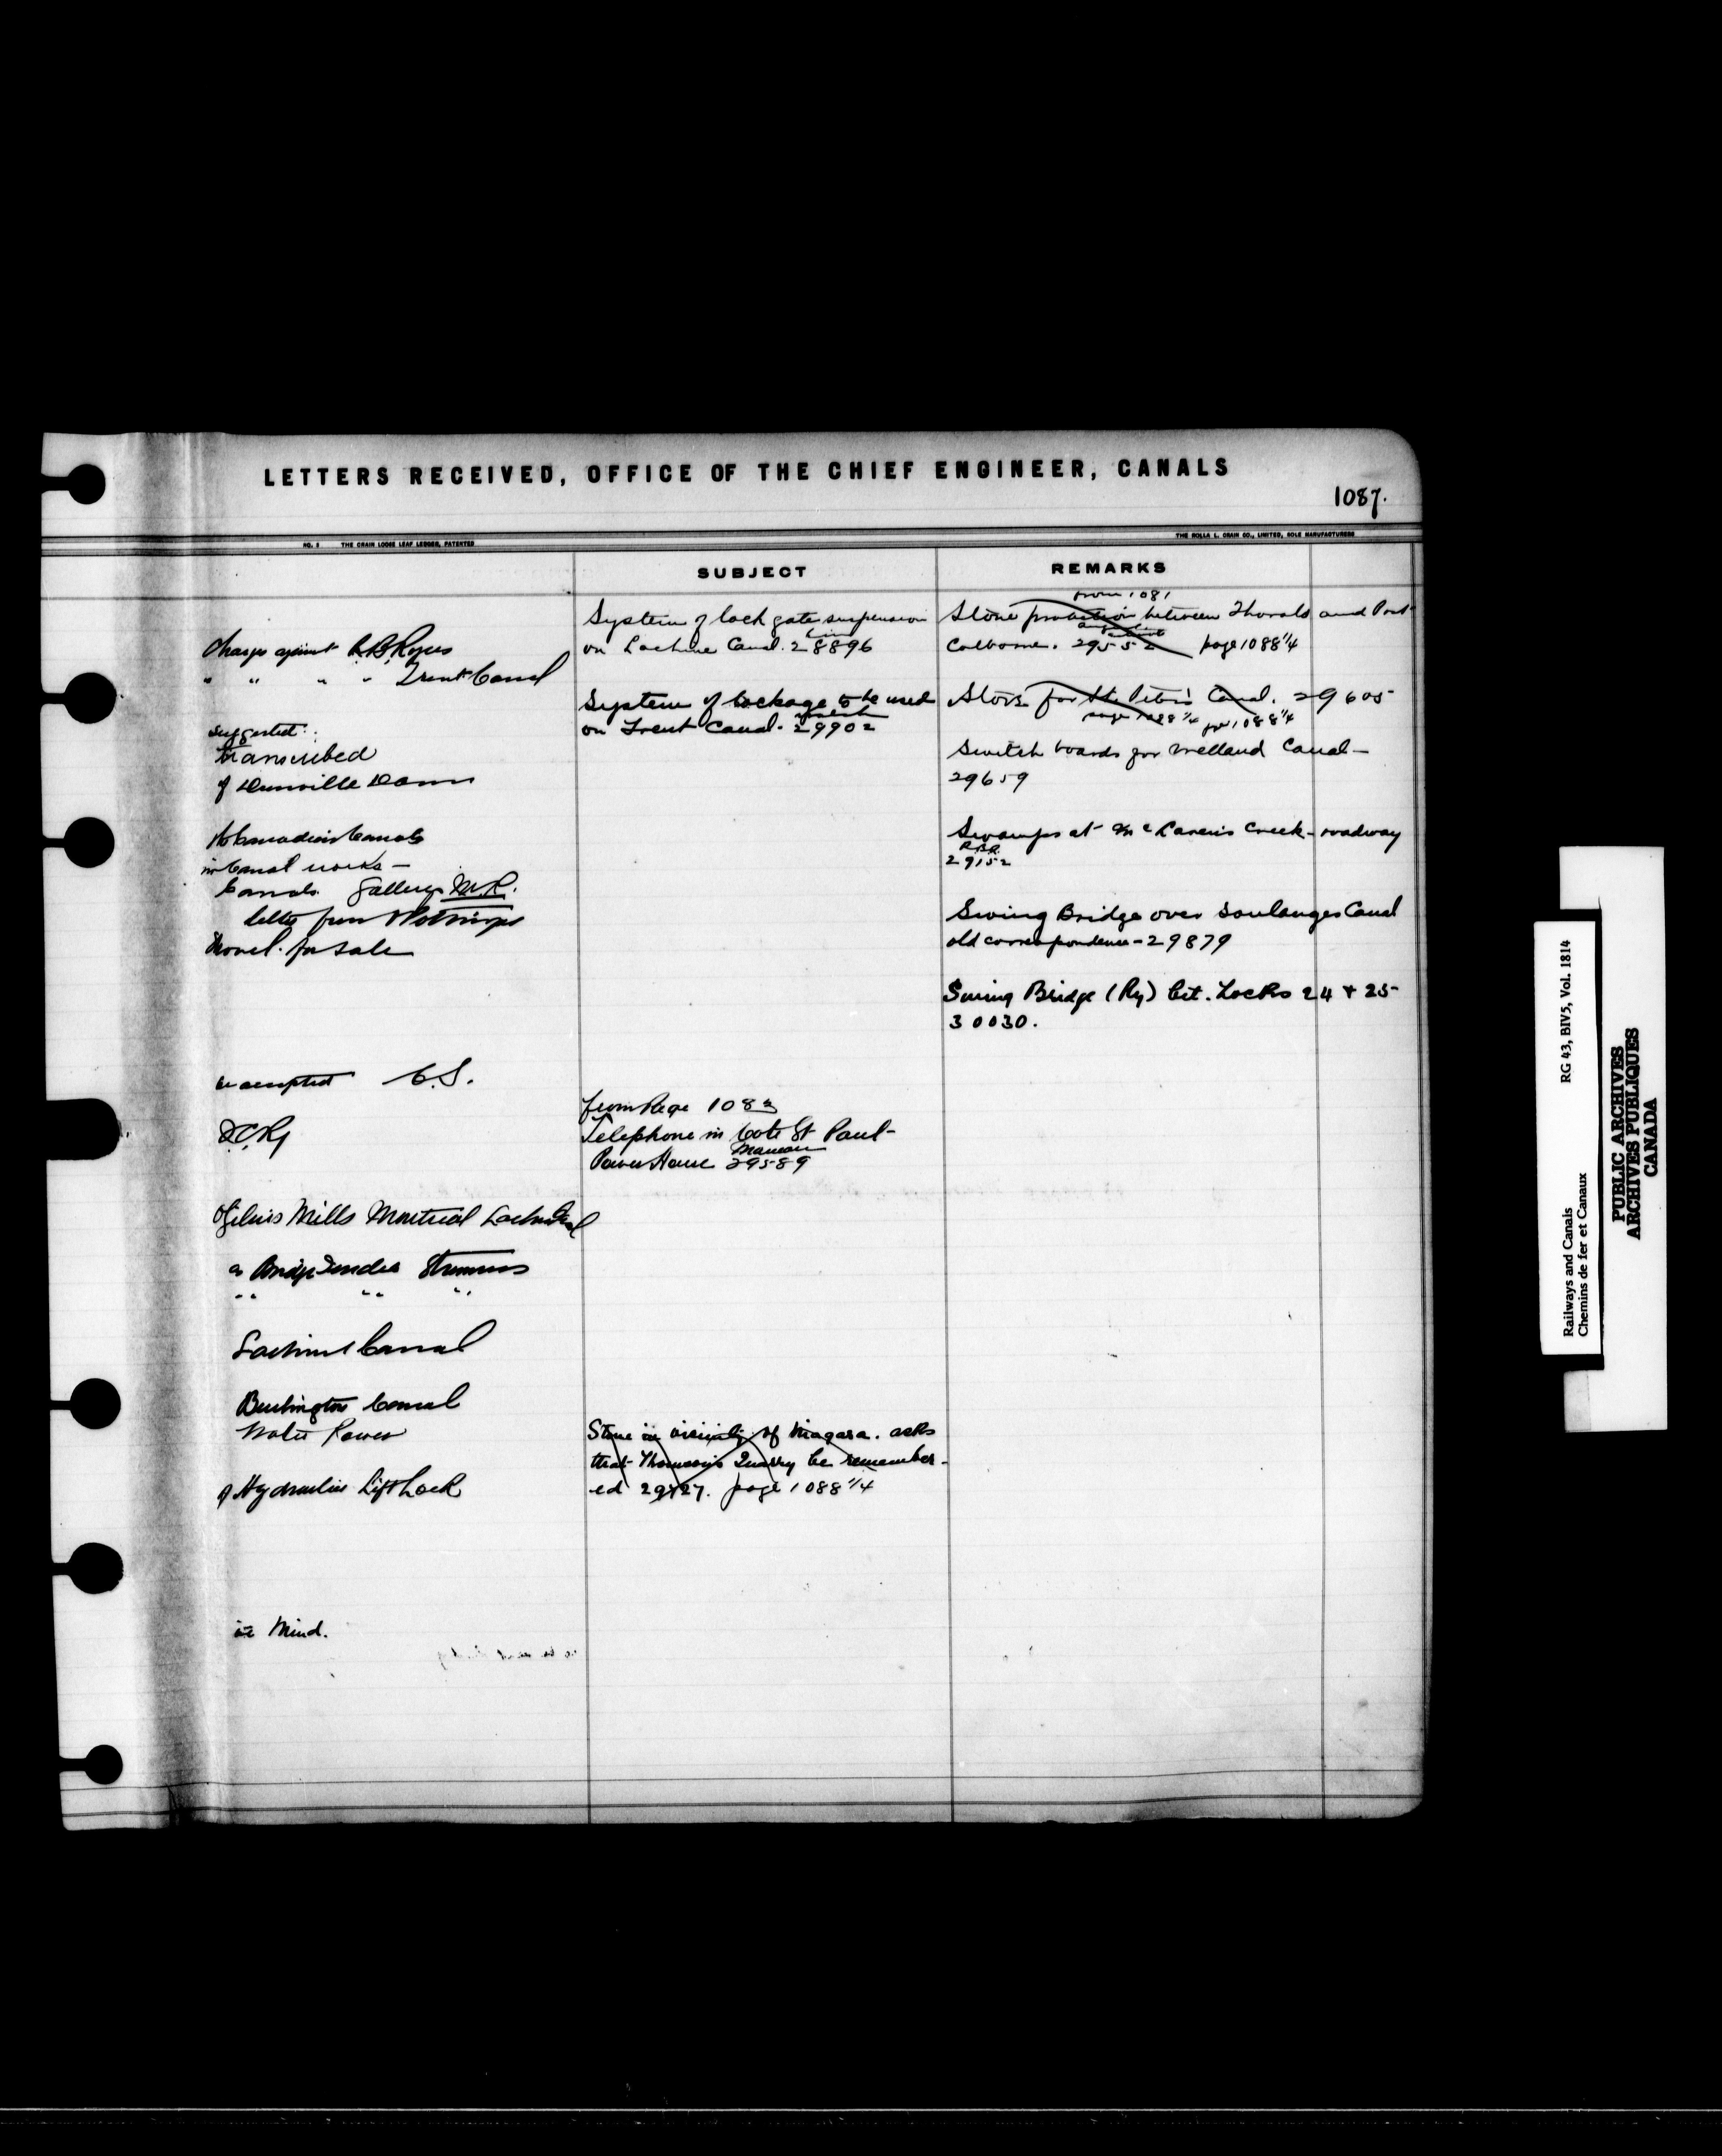 LETTERS RECEIVED, OFFICE OF THE CHIEF ENGINEER, CANALS
1087.
NO. 5 THE CRAIN LOOSE LEAF LEDGER, PATENTED
THE ROLLA L. CRAIN CO., LIMITED, SOLE MANUFACTURERS
SUBJECT
REMARKS
Charges against R.B. Rogers
" " " " Trent Canal
suggested
transcribed
of Dunnville Dam
to Canadian Canals
in Canal works -
Canals. Gallery M.R.
letter from
Shovel. for sale
be accepted C.S.
Ogilvies Mills Montreal Lachine Canal
as Bridge Tender
" " "
Lachine Canal
Burlington Canal
Water Power
of Hydraulic Lift Lock
in Mind.
System of lock gate suspension
on Lachine Canal. 28896
System of lockage to be used
on Trent Canal. 29902
from Page 1083
Telephone in Cote St Paul-
Power House 29589
Stone in vicinity of Niagara. asks
that Thomson's Quarry be remember-
ed 29727. page 1088 1/4
from 1081
Stone protection between Thorold and Port
Colborne. 29552 page 1088 1/4
Stone for the Canal. 29605
page 1088 1/4 page 1088 1/4
Switch boards for Welland Canal-
29659
Swamps at McLaren's Creek - roadway
R.B.R.
29152
Swing Bridge over Soulanges Canal
old correspondence - 29879
Swing Bridge (Ry) bet. Locks 24 & 25-
30030.
Railways and Canals RG 43, BIV5, Vol. 1814
Chemins de fer et Canaux
PUBLIC ARCHIVES
ARCHIVES PUBLIQUES
CANADA